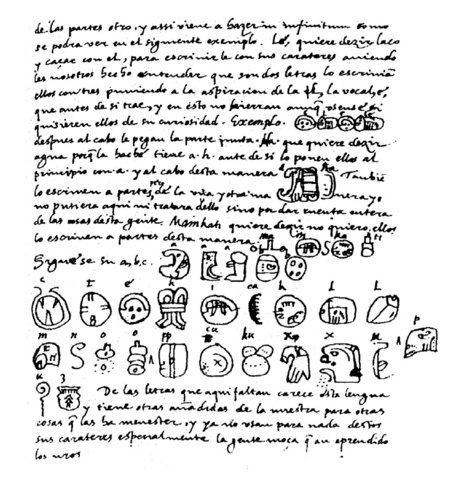 de las partes otro, y assi viene a hazer in infinitum como
se podra ver en el siguiente exemplo. Lé, quiere dezir laço
y caçar con el, para escrivirle con sus carateres aviendo
les nosotros hecho entender que son dos letras lo escrivian
ellos con tres puniendo a la aspiracion de la l, la vocal, é,
que antes de si trae, y en esto no hierran aunq̃ usense, si
quisieren ellos de su curiosidad. Exemplo.
despues al cabo le pegan la parte junta. Ha que quiere dezir
agua porq̃ la hache tiene a. h. ante de si lo ponen ellos al
principio con a. y al cabo desta manera Tambiē
lo escriven a partes de la una y otra manera yo
no pusiera aqui ni tratara dello sino por dar cuenta entera
de las cosas desta gente. Mainkati quiere dezir no quiero, ellos
lo escriven a partes desta manera ma i n ka ti
Siguese su a, b, c. a a a b b
c t é h i ca k l l
m n o o pp cu ku x p
u z De las letras que aqui faltan carece esta lengua
y tiene otras añadidas de la nuestra para otras
cosas q̃ las ha menester, y ya no usan para nada destos
sus carateres especialmente la gente moça q̃ an aprendido
los nros